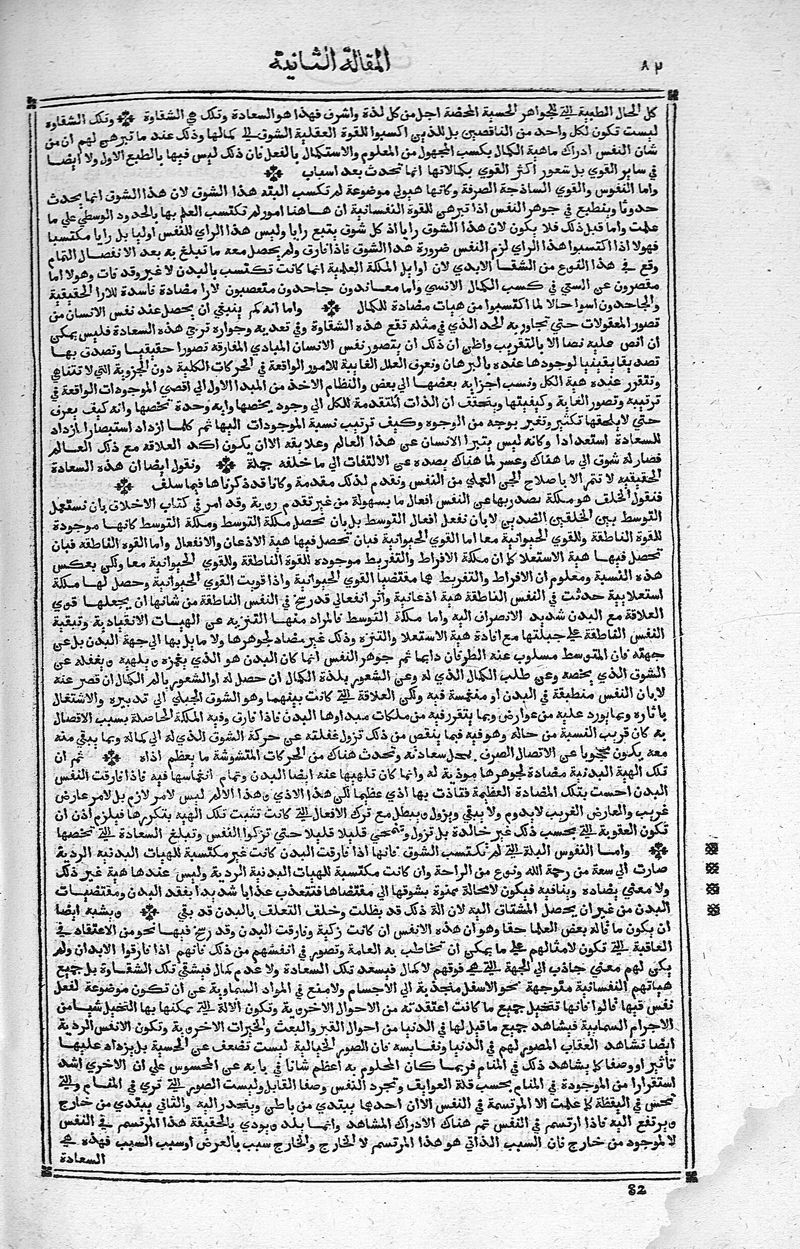 ٨٢
المقالة الثانية
كل الحال الطيبة التي للجواهر الحسية المحضة اجل من كل لذة واشرف فهذا هو السعادة وتلك هي الشقاوة وتلك الشقاوة
ليست تكون لكل واحد من الناقصين بل للذين اكسبوا للقوة العقلية الشوق الى كمالها وذلك عند ما تبرهن لهم ان من
شان النفس ادراك ماهية الكمال بكسب المجهول من المعلوم والاستكمال بالفعل فان ذلك ليس فيها بالطبع الاول ولا ايضا
في ساير القوي بل شعور اكثر القوي بكمالاتها انما تحدث بعد اسباب
واما النفوس والقوي الساذجة الصرفة وكانها هيولي موضوعة لم تكسب البتة هذا الشوق لان هذا الشوق انما يحدث
حدوثا وينطبع في جوهر النفس اذا تبرهن للقوة النفسانية ان هاهنا امور لم تكتسب العلم بها بالحدود الوسطي علي ما
علمت واما قبل ذلك فلا يكون لان هذا الشوق رايا اذ كل شوق يتبع رايا وليس هذا الراي للنفس اوليا بل رايا مكتسبا
فهولا اذا اكتسبوا هذا الراي لزم النفس ضرورة هذا الشوق فاذا فارق ولم يحصل معه ما تبلغ به بعد الانفصال التمام
وقع في هذا النوع من الشقا الابدي لان اوايل الملكة العلمية انما كانت تكتسب بالبدن لا غير وقد فات وهولا اما
مقصرون عن السعي في كسب الكمال الانسي واما معاندون جاحدون متعصبون لارا فاسدة مضادة للارا الحقيقية
والجاحدون اسوا حالا لما اكتسبوا من هيات مضادة للكمال واما انه كم ينبغي ان يحصل عند نفس الانسان من
تصور المعقولات حتي تجاوز به الحد الذي في مثله تقع هذه الشقاوة وفي تعديه وجوازه ترجي هذه السعادة فليس يمكن
ان انص عليه نصا الا بالتقريب واظن ان ذلك ان يتصور نفس الانسان المبادي المفارقة تصورا حقيقيا وتصدق بها
تصديقا يقينيا لوجودها عنده بالبرهان وتعرف العلل الغايية للامور الواقعة في الحركات الكلية دون الجزوية التي لا تتناهي
وتتقرر عنده هية الكل ونسب اجزايه بعضها الي بعض والنظام الاخذ من المبدا الاول الي اقصي الموجودات الواقعة في
ترتيبه وتصور الغاية وكيفيتها وتتحقق ان الذات المتقدمة للكل اي وجود يخصها واية وحدة تخصها وانه كيف يعرف
حتي لا يلحقها تكثير وتغير بوجه من الوجوه وكيف ترتيب نسبة الموجودات اليها ثم كلما ازداد استبصارا ازداد
للسعادة استعدادا وكانه ليس يتبرا الانسان عن هذا العالم وعلايقه الا ان يكون اكد العلاقة مع ذلك العالم
فصار له شوق الي ما هناك وعشر لما هناك يصده عن الالتفات الي ما خلفه جملة ونقول ايضا ان هذه السعادة
الحقيقية لا تتم الا باصلاح الجزء العملي من النفس ونقدم لذلك مقدمة وكانا قد ذكرناها فيما سلف
فنقول الخلق هو ملكة يصدر بها عن النفس افعال ما بسهولة من غير تقدم روية وقد امر في كتاب الاخلاق بان نستعمل
التوسط بين الخلقين الضدين لا بان نفعل افعال التوسط بل بان تحصل ملكة التوسط وملكة التوسط كانها موجودة
للقوة الناطقة وللقوي الحيوانية معا اما القوي الحيوانية فبان تحصل فيها هية الاذعان والانفعال واما القوة الناطقة فبان
تحصل فيها هية الاستعلا كما ان ملكة الافراط والتفريط موجوده للقوة الناطقة وللقوي الحيوانية معا ولكن بعكس
هذه النسبة ومعلوم ان الافراط والتفريط هما مقتضيا القوي الحيوانية واذا قويت القوي الحيوانية وحصل لها ملكة
استعلايية حدثت في النفس الناطقة هية اذعانية واثر انفعالي قد رسخ في النفس الناطقة من شانها ان يجعلها قوي
العلاقة مع البدن شديد الانصراف اليه واما ملكة التوسط فالمراد منها التنزيه عن الهيات الانقيادية وتبقية
النفس الناطقة علي جبلتها مع افادة هية الاستعلا والتنزه وذلك غير مضاد لجوهرها ولا مايل بها الي جهة البدن بل عن
جهته فان المتوسط مسلوب عنه الطرفان دايما ثم جوهر النفس انما كان البدن هو الذي يغمره ويلهيه ويغفله عن
الشوق الذي يخصه وعن طلب الكمال الذي له وعن الشعور بلذة الكمال ان حصل له او الشعور بالم الكمال ان قصر عنه
لا بان النفس منطبعة في البدن او منغمسة فيه ولكن العلاقة التي كانت بينهما وهو الشوق الجبلي الي تدبيره والاشتغال
باثاره وبما يورد عليه من عوارض وبما يتقرر فيه من ملكات مبداوها البدن فاذا فارق وفيه الملكة الحاصلة بسبب الاتصال
به كان قريب النسبة من حاله وهو فيه فبما ينقص من ذلك تزول غفلته عن حركة الشوق الذي له الي كماله وبما يبقي منه
معه يكون محجوبا عن الاتصال الصرف بمحل سعادته وتحدث هناك من الحركات المتشوشة ما يعظم اذاه ثم ان
تلك الهية البدنية مضادة لجوهرها موذية له وانما كان تلهيها عنه ايضا البدن وتمام انغماسها فيه فاذا فارقت النفس
البدن احست بتلك المضادة العظيمة فتاذت بها اذي عظيما لكن هذا الاذي وهذا الالم ليس لامر لازم بل لامر عارض
غريب والعارض الغريب لا يدوم ولا يبقي ويزول ويبطل مع ترك الافعال التي كانت تثبت تلك الهية بتكررها فيلزم اذن ان
تكون العقوبة التي بحسب ذلك غير خالدة بل تزول وتنمحي قليلا قليلا حتي تزكوا النفس وتبلغ السعادة التي تخصها
واما النفوس البلة التي لم تكتسب الشوق فانها اذا فارقت البدن كانت غير مكتسبة للهيات البدنية الردية
صارت الي سعة من رحمة الله ونوع من الراحة وان كانت مكتسبة للهيات البدنية الردية وليس عندها هية غير ذلك
ولا معني يضاده وينافيه فيكون لا محالة ممنوة بشوقها الي مقتضاها فتتعذب عذابا شديدا بفقد البدن ومقتضيات
البدن من غير ان يحصل المشتاق اليه لان الة ذلك قد بطلت وخلف التعلق بالبدن قد بقي ويشبه ايضا
ان يكون ما قاله بعض العلما حقا وهو ان هذه الانفس ان كانت زكية وفارقت البدن وقد رسخ فيها نحو من الاعتقاد في
العاقبة التي تكون لامثالهم علي ما يمكن ان تخاطب به العامة وتصور في انفسهم من ذلك فانهم اذا فارقوا الابدان ولم
يكن لهم معني جاذب الي الجهة التي هي فوقهم لا كمال فيسعد تلك السعادة ولا عدم كمال فيشقي تلك الشقاوة بل جميع
هياتهم النفسانية متوجهة نحو الاسفل منجذبة الي الاجسام ولا منع في المواد السماوية عن ان تكون موضوعة لفعل
نفس فيها قالوا فانها تتخيل جميع ما كانت اعتقدته من الاحوال الاخروية وتكون الالة التي يمكنها بها التخيل شيا من
الاجرام السماية فيشاهد جميع ما قيل لها في الدنيا من احوال القبر والبعث والخيرات الاخروية وتكون الانفس الردية
ايضا تشاهد العقاب المصور لهم في الدنيا وتقايسه فان الصور الخيالية ليست تضعف عن الحسية بل يزداد عليها
تاثيرا وصفا كما يشاهد ذلك في المنام فربما كان المحلوم به اعظم شانا في بابه من المحسوس علي ان الاخري اشد
استقرارا من الموجودة في المنام بحسب قلة العوايق وتجرد النفس وصفا القابل وليست الصور التي تري في المنام والتي
تحس في اليقظة كما علمت الا المرتسمة في النفس الا ان احدها يبتدي من باطن وينحدر اليه والثاني يبتدي من خارج
ويرتفع اليه فاذا ارتسم في النفس تم هناك الادراك المشاهد وانما يلذ ويوذي بالحقيقة هذا المرتسم في النفس
لا لموجود من خارج فان السبب الذاتي هو هذا المرتسم لا الخارج والخارج سبب بالعرض او سبب السبب فهذه هي
السعادة
82